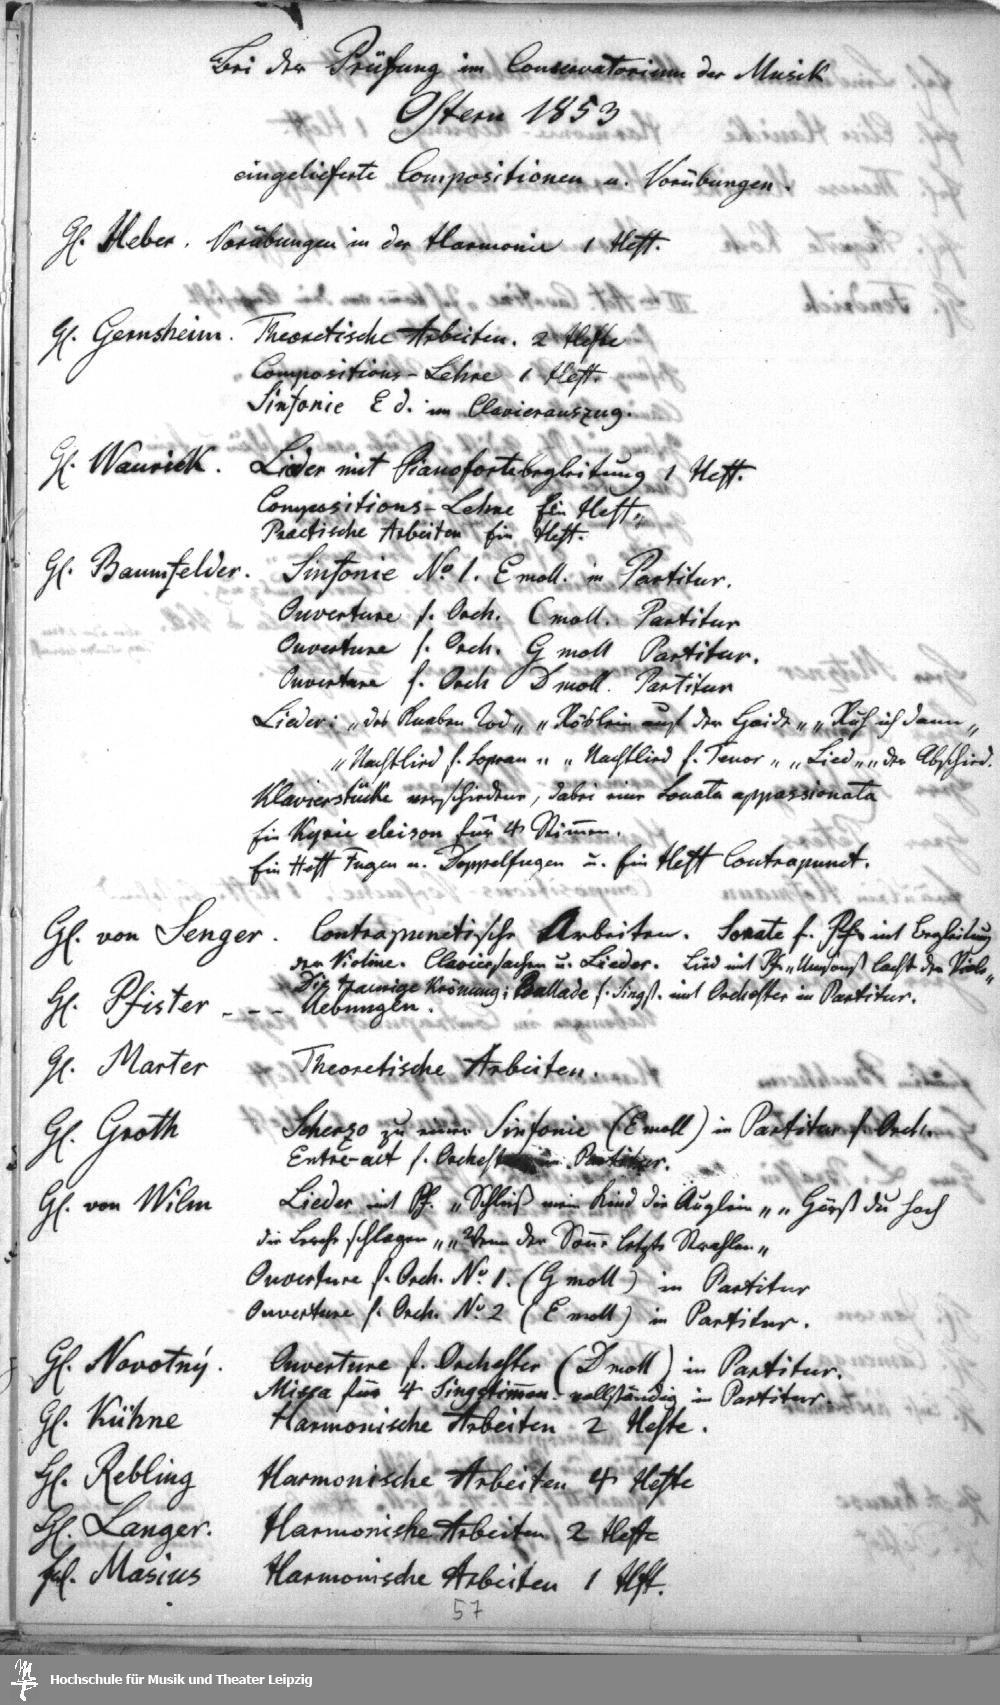 Bei der Prüfung im Conservatorium der Musik
Ostern 1853
eingelieferte Compositionen u. Vorübungen.
H. Heber. Vorübungen in der Harmonie 1 Heft.
H. Gernsheim. Theoretische Arbeiten. 2 Hefte
Compositions-Lehre 1 Heft.
Sinfonie E d. im Clavierauszug.
H. Waurick. Lieder mit Pianofortebegleitung 1 Heft.
Compositions-Lehre Ein Heft„
Practische Arbeiten Ein Heft.
H. Baumfelder. Sinfonie No 1. E moll. in Partitur.
Ouverture f. Orch. C moll. Partitur
Ouverture f. Orch. G moll Partitur.
Ouverture f. Orch D moll. Partitur
Lieder: „des Knaben Tod„ „Röslein auf der Haide„ „Ruh ich dann„
„Nachtlied f. Sopran„ „Nachtlied f. Tenor„ „Lied„ „der Abschied.
Klavierstücke verschiedene, dabei eine Sonata appassionata
Ein Kyrie eleison für 4 Stimmen.
Ein Heft Fugen u. Doppelfugen u. Ein Heft Contrapunct.
H. von Senger. Contrapunctische Arbeiten. Sonate f. Pfte mit Begleitung
der Violine. Claviersachen u. Lieder. Lied mit Pf. „Umsonst lacht der
Die traurige Krönung; Ballade f. Singst. mit Orchester in Partitur.
H. Pfister - - - Uebungen.
H. Marter Theoretische Arbeiten.
H. Groth Scherzo zu einer Sinfonie (E moll) in Partitur f. Orch.
Entre-act f. Orchester in Partitur.
H. von Wilm Lieder mit Pf. „Schließ mein Kind die Äuglein„ „Hörst du hoch
die Lerche schlagen„ „Wenn der Sonne letzte Strahlen„
Ouverture f. Orch. No 1. (G moll) in Partitur
Ouverture f. Orch. No 2 (E moll) in Partitur.
H. Novotný. Ouverture f. Orchester (D moll) in Partitur.
Missa für 4 Singstimmen - vollständig in Partitur.
H. Kühne Harmonische Arbeiten 2 Hefte.
H. Rebling Harmonische Arbeiten 4 Hefte
H. Langer. Harmonishe Arbeiten 2 Hefte
Frl. Masius Harmonische Arbeiten 1 Hft.
57
Hochschule für Musik und Theater Leipzig